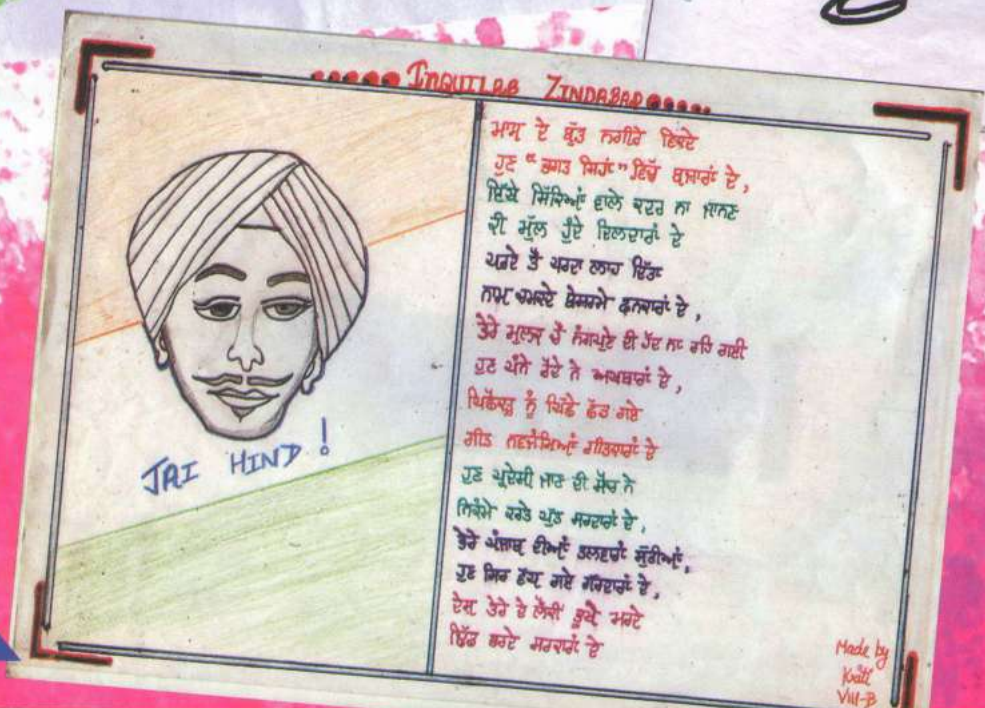 INQUILAB ZINDABAD
JAI HIND !
ਮਾਸ ਦੇ ਬੁੱਤ ਨਗੀਰੇ ਵਿਕਦੇ
ਹੁਣ "ਭਗਤ ਸਿੰਹਾਂ" ਵਿੱਚ ਬਜ਼ਾਰਾਂ ਦੇ,
ਇੱਥੇ ਸਿੱਕਿਆਂ ਵਾਲੇ ਕਦਰ ਨਾ ਜਾਨਣ
ਕੀ ਮੁੱਲ ਹੁੰਦੇ ਦਿਲਦਾਰਾਂ ਦੇ
ਪਰਦੇ ਤੋਂ ਪਰਦਾ ਲਾਹ ਦਿੱਤਾ
ਨਾਮ ਚਮਕਦੇ ਬੇਸ਼ਰਮੇ ਫਨਕਾਰਾਂ ਦੇ,
ਤੇਰੇ ਮੁਲਕ ਚੋਂ ਨੰਗਪੁਣੇ ਦੀ ਹੱਦ ਨਾ ਰਹਿ ਗਈ
ਹੁਣ ਪੰਨੇ ਰੋਂਦੇ ਨੇ ਅਖਬਾਰਾਂ ਦੇ,
ਪਿਛੋਕੜ ਨੂੰ ਪਿੱਛੇ ਛੱਡ ਗਏ
ਗੀਤ ਨਵਜੰਮਿਆਂ ਗੀਤਕਾਰਾਂ ਦੇ
ਹੁਣ ਪ੍ਰਦੇਸੀਂ ਜਾਣ ਦੀ ਸੋਚ ਨੇ
ਨਿਕੰਮੇ ਕਰਤੇ ਪੁੱਤ ਸਰਦਾਰਾਂ ਦੇ,
ਤੇਰੇ ਪੰਜਾਬ ਦੀਆਂ ਤਲਵਾਰਾਂ ਸੁੱਤੀਆਂ,
ਹੁਣ ਸਿਰ ਵੱਧ ਗਏ ਗੱਦਾਰਾਂ ਦੇ,
ਦੇਸ਼ ਤੇਰੇ ਦੇ ਲੋਕੀਂ ਭੁੱਖੇ ਮਰਦੇ
ਢਿੱਡ ਭਰਦੇ ਸਰਕਾਰਾਂ ਦੇ
Made by
VIII-B